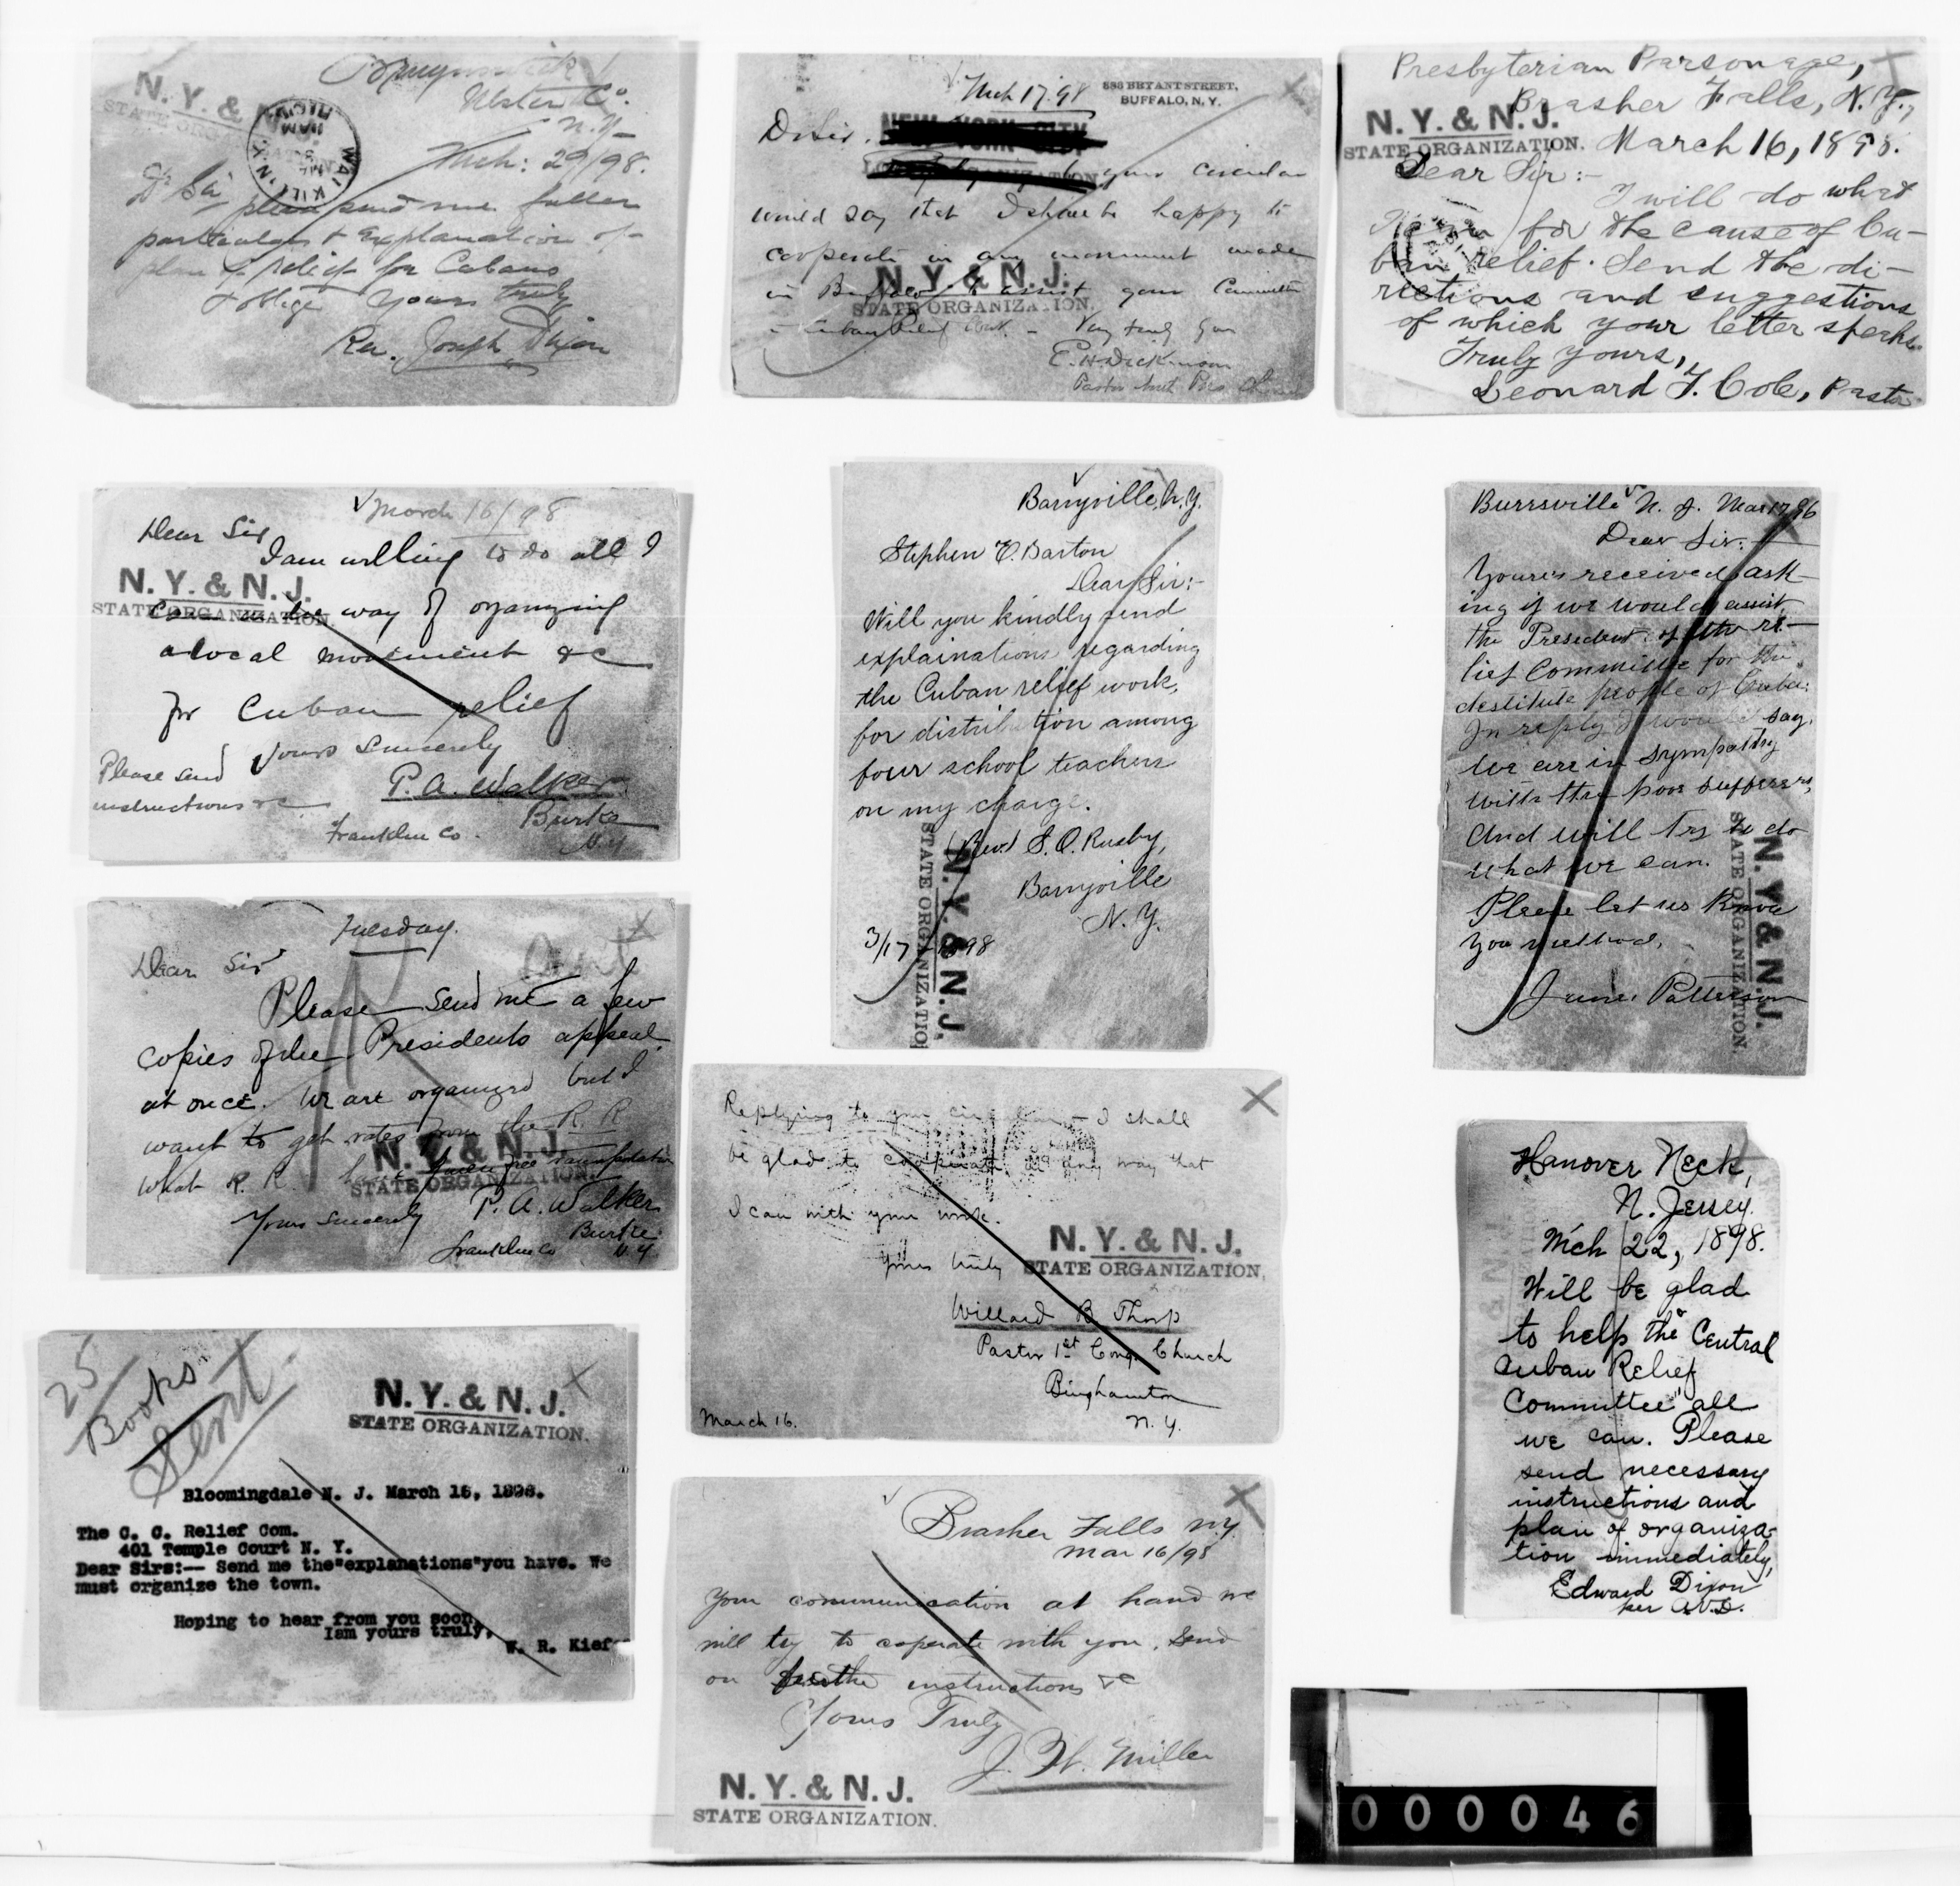 Bruynswick
Ulster Co.
N.Y.
Mch: 29/98.
N. Y. & N. J.
STATE ORGANIZATION.
WALLKILL N.Y.
Dr Sir please send me fuller
particulars & explanation of
plan of relief for Cubans
& oblige Yours truly
Rev. Joseph Dixon
Mch 17.98
886 BRYANT STREET,
BUFFALO, N. Y.
Dr Sir.
NEW YORK CITY
LOCAL ORGANIZATION
your circular
would say that I shall be happy to
cooperate in any movement made
in Buffalo to assist your Committee
in Cuban Relief work – Very truly yours
N. Y. & N. J.
STATE ORGANIZATION.
E. H. Dickinson
Pastor Pres. Church
Presbyterian Parsonage,
Brasher Falls, N. Y.,
N. Y. & N. J.
STATE ORGANIZATION.
March 16, 1898.
Dear Sir:-
I will do what
I can for the cause of Cu-
ban relief. Send the di-
rections and suggestions
of which your letter speaks.
Truly yours,
Leonard F. Cole, Pastor
March 16/98
Dear Sir
I am willing to do all I
N. Y. & N. J.
STATE ORGANIZATION.
can in the way of organizing
a local movement &c
for Cuban relief
Yours Sincerely
Please send
instructions &c
P. A. Walker
Burke
Franklin Co.
N.Y.
Barryville, N. Y.
Stephen E. Barton
Dear Sir:-
Will you kindly send
explainations regarding
the Cuban relief work,
for distribution among
four school teachers
on my charge.
(Rev.) S. O. Rusby,
Barryville
N. Y.
3/17-1898
N. Y. & N. J.
STATE ORGANIZATION
Burrsville N. J. Mar 17 96
Dear Sir:
Youre's received, ask-
ing if we would assist
the President of the re-
lief Committee for the
destitute people of Cuba:
In reply I would say.
We are in sympathy
with the poor sufferers,
And will try to do
what we can.
Please let us know
you method.
Patterson
N. Y. & N. J.
STATE ORGANIZATION.
Tuesday.
Dear Sir
Sent
Please send me a few
copies of the Presidents appeal
at once. We are organized but I
want to get rates from the R R
what R. R. have given free transportation
N. Y. & N. J.
STATE ORGANIZATION.
Yours sincerely P. A. Walker
Burke
Franklin Co N.Y
Replying to your circular – I shall
be glad to cooperate in any way that
I can with your work.
Yours truly
N. Y. & N. J.
STATE ORGANIZATION.
Willard B Thorp
Pastor 1st Cong. Church
Binghamton
N. Y.
March 16.
Hanover Neck,
N. Jersey.
Mch 22, 1898.
Will be glad
to help the "Central
Cuban Relief
Committee" all
we can. Please
send necessary
instructions and
plan of organiza-
tion immediately,
Edward Dixon
per A.V.D.
25
Books
Sent
N. Y. & N. J.
STATE ORGANIZATION.
Bloomingdale N. J. March 16, 1898.
The C. C. Relief Com.
401 Temple Court N. Y.
Dear Sirs:-- Send me the"explanations"you have. We
must organize the town.
Hoping to hear from you soon,
Iam yours truly,
W. R. Kief
Brasher Falls NY.
Mar 16/98
Your communication at hand we
will try to coperate with you. Send
on further instructions &c
Yours Truly
J. H. Miller
N. Y. & N. J.
STATE ORGANIZATION.
000046